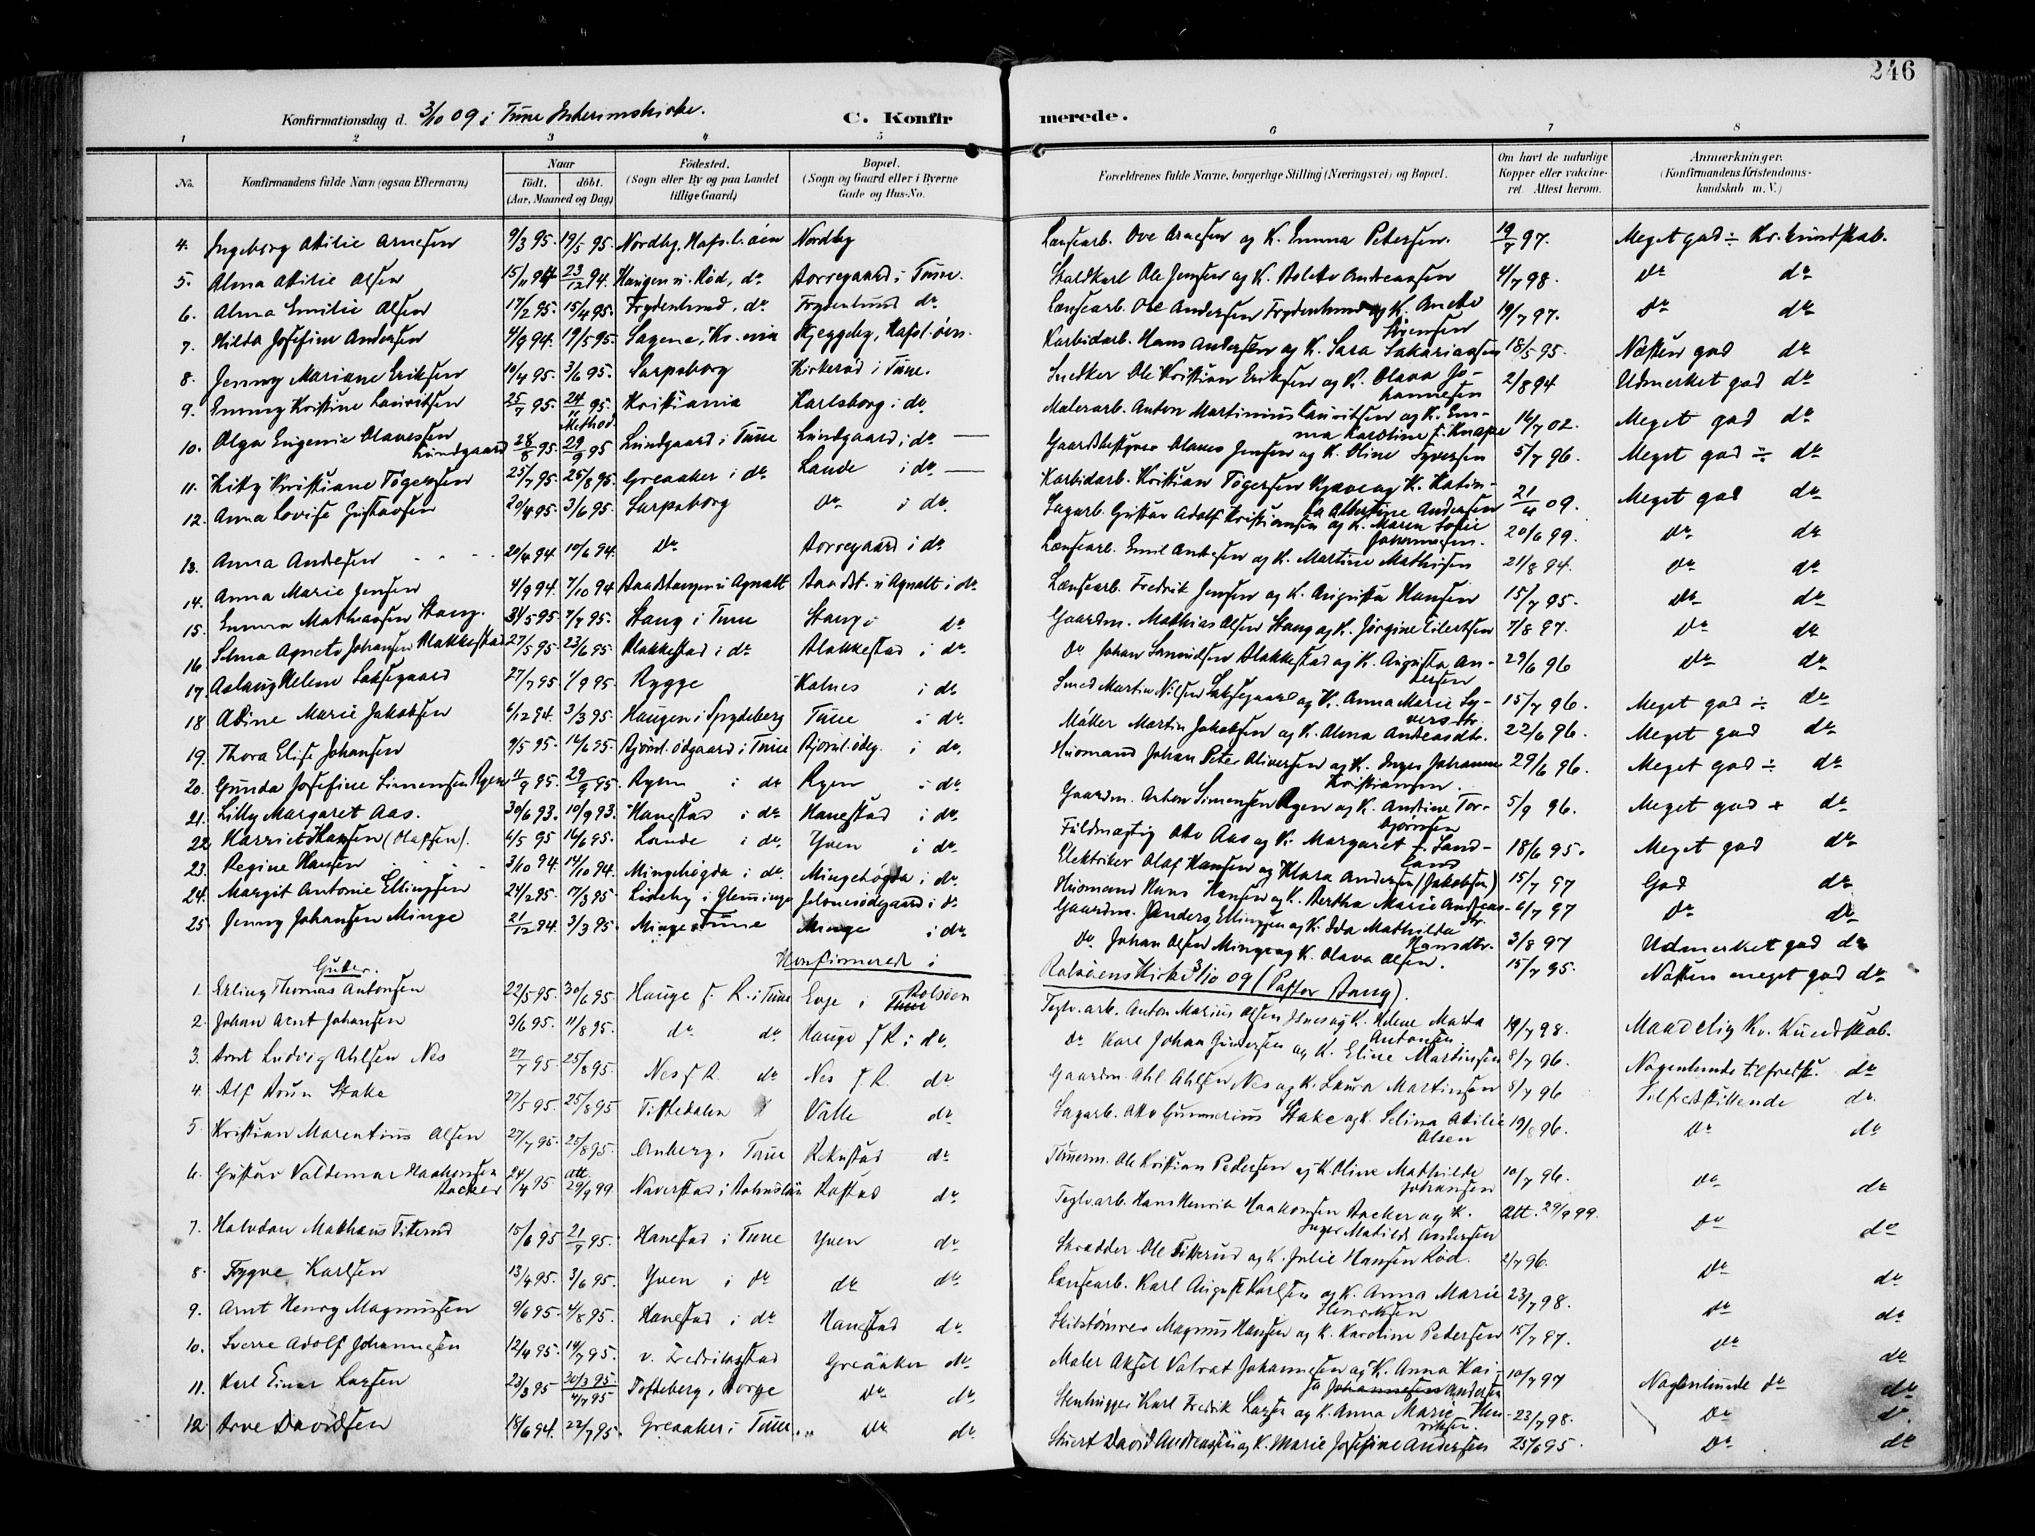 246
Konfirmationsdag d. 3/10 09 i Tune Interimskirke.
C. Konfirmerede.
1 2 3 4 5 6 7 8
No. Konfirmandens fulde Navn (ogsaa Efternavn) Naar født. døbt. (Aar, Maaned og Dag) Fødested. (Sogn eller By og paa Landet tillige Gaard) Bopæl. (Sogn og Gaard eller i Byerne Gade og Hus-No. Forældrenes fulde Navne, borgerlige Stilling (Næringsvei) og Bopæl. Om havt de naturlige Kopper eller vaccineret. Attest herom. Anmærkninger. (Konfirmandens Kristendomskundskab m. V.)
4. Ingeborg Otilie Arnesen 9/3 95. 19/5 95. Nordby, Hafsl. öen Nordby Lænsearb. Ove Arnesen og K. Emma Petersen. 19/7 97. Meget god ÷ Kr. kundskab.
5. Alma Otilie Olsen 15/11 94 23/12 94. Haugen u. Röd, do Torregaard i Tune. Staldkarl Ole Jensen og K. Andreassen 4/7 98. Do do
6. Alma Emilie Olsen 17/2 95. 15/4 95. Frydenlund, do Frydenlund do Lænsearb. Ole Andersen Frydenlund og K. Anette Sörensen 19/7 97. Do do
7. Hilda Josefine Andersen 4/9 94. 19/5 95. Sagene, Kr.ania Hjeggeby, Hafsl. öen. Karbidarb. Hans Andersen og K. Sara Sakariassen 18/5 95. Næsten god do
8. Jenny Mariane Eriksen 10/4 95. 3/6 95. Sarpsborg Kirkeröd i Tune. Snedker Ole Kristian Eriksen og K. Olava Johannesen 2/8 94 Udmerket god do
9. Emmy Kristine Lauritsen 25/7 95. 24/11 95. Method. Kristiania Karlsborg i do Malerarb. Anton Martinius Lauritsen og K. Emma Karoline f. Knape 16/7 02. Meget god do
10. Olga Eugenie Olavesen Lundgaard 28/8 95. 29/9 95 Lundgaard i Tune Lundgaard i do Gaardbestyrer Olaves Jensen og K. Oline Syversen 5/7 96. Meget god ÷ do
11. Kitty Kristiane Tögersen 25/7 95. 25/8 95. Greaaker i do Lande i do Karbidarb. Kristian Tögersen og K. Katinka Albertine Andersen 21/4 09. Meget god do
12. Anna Lovise Gustavsen 20/4 95. 3/6 95. Sarpsborg Do i do Sagarb. Gustav Adolf Kristiansen og K. Maren Sofie Johannesen. 20/6 99. Do do
13. Anna Andresen 20/4 94. 10/6 94. Do Torregaard i do Lænsearb. Emil Andresen og K. Martine Mathisen 21/8 94. Do do
14. Anna Marie Jensen 4/9 94. 7/10 94 Taadstangen u Agnalt Taadst. u Agnalt i do Lænsearb. Fredrik Jensen og K. Augusta Hansen 15/7 95. Do do
15. Emma Mathiassen Stang. 31/5 95. 7/7 95. Stang i Tune Stang i do Gaardm. Mathias Olsen Stang og K. Jørgine Eilertsen 7/8 97. Do do
16. Selma Agnete Johansen Blakkestad 27/5 95. 23/6 95. Blakkestad i do Blakkestad i do Do Johan Blakkestad og K. Augusta Andersen 29/6 96 Do do
17. Aslaug Helene Laksegaard 27/7 95. 1/9 95. Rygge Kalnes i do Smed Martin Nilsen Laksegaard og K. Anna Marie Syversdtr. 15/7 96. Meget god ÷ do
18. Abine Marie Jakobsen 6/12 94. 3/3 95. Haugen i Spydeberg Tune i do. Møller Martin Jakobsen og K. Alma Andreasdtr. 22/6 96. Meget god do
19. Thora Elise Johansen 9/5 95. 16/6 95. Bjørnl. ødgaard i Tune Bjørnl. ödeg. i do. Husmand Johan Peter Oliversen og K. Inger Johanne Kristiansen. 29/6 96. Meget god ÷ do
20. Gunda Josefine Simensen Ryen 11/9 95. 29/9 95. Ryen i do Ryen i do. Gaardm. Anton Simensen Ryen og K. Andrine Torbjörnsen 5/9 96. Meget god + do
21. Lilly Margaret Aas. 30/6 93. 10/9 93. Hanestad i do Hanestad i do. Fuldmægtig Otto Aas og K. Margaret f. Sandland 18/6 95. Meget god do
22. Harriet Hansen (Olafsen). 6/5 95 16/6 95. Lande i do. Yven i do. Elektriker Olaf Hansen og Klara Andersen (Jakobsen) 15/7 97 God do
23. Regine Hansen 3/10 94. 14/10 94. Mingehögda i do. Mingehögda i do. Husmand Hans Hansen og K. Bertha Marie Andreasdtr. 6/7 97 Do do
24. Margit Antonie Ellingsen 24/2 95. 17/3 95. Lideby i Glemminge Jelsnesödegaard i do Gaardm. Anders Ellingsen og K. Ida Mathilda Hansdtr. 3/8 97 Udmerket god do
25. Jenny Johansen Minge 21/12 94. 3/3 95. Minge i Tune Minge i do. Do. Johan Olsen Minge og K. Olava Olsen. 15/7 95. Næsten meget god do
Konfirmerede i Rolvsöens Kirke 3/10 09 (Pastor Stang).
Gutter.
1. Erling Thomas Antonsen 22/5 95. 30/6 95. Hauge f R. i Tune Evje i Rolvsöen Teglv.arb. Anton Marius Olsen og K. Helene Marta Antonsen 19/7 98. Maadelig Kr. Kundskab.
2. Johan Arnt Johansen 3/6 95. 11/8 95. do do Hauge f R. i do. Do Karl Johan Gundersen og K. Eline Martinsen 8/7 96. Nogenlunde tilfredst. do
3. Arnt Ludvig Ahlsen Nes 27/7 95. 25/8 95. Nes f R. do Nes f R. do Gaardm. Ahl Ahlsen Nes og K. Laura Martinsen 8/7 96 Tilfredstillende do.
4. Alf Brun Stake 27/5 95. 25/8 95 Tistedalen Valle do Sagarb. Otto Gunnerius Stake og K. Selina Otilie Olsen 19/8 96. Do do
5. Kristian Marentius Olsen 27/7 95. 25/8 95. Arnberg i Tune Rekustad do Tömerm. Ole Kristian Pedersen og K. Oline Mathilde Johansen 10/7 96. Do do
6. Gustav Valdemar Haakonsen Backer 24/4 95. Att. 29/9 99. Naverstad i Bohuslän Rostad do Teglv.arb. Hans Henrik Haakonsen Backer og K. Inger Matilde Andersen Att. 29/9 99. Do do
7. Halvdan Mathæus Fikerud 15/6 95 21/7 95. Hanestad i Tune Yven do Skrædder Ole Fikerud og K. Julie Hansen Röd. 2/7 96. Do do
8. Trygve Karlsen 13/4 95. 3/6 95. Yven i do do do Lænsearb. Karl August Karlsen og K. Anna Marie Henriksen 23/7 98. Do do
9. Arnt Henry Magnussen 9/6 95 4/8 95. Hanestad i do Hanestad do Skibstömrer Magnus Hansen og K. Karoline Petersen 15/7 97. Do do
10. Sverre Adolf Johannesen 12/4 95. 14/7 95. v. Fredrikstad Greåaker do Maler Aksel Valrat Johannesen og K. Anna Kaisa Andersen 10/7 97 Nogenlunde do do
11. Karl Einar Larsen 23/3 95 30/3 95. 4/7 95 Tofteberg, Borge Do do Stenhugger Karl Fredrik Larsen og K. Anna Marie Henriksen 23/7 98. Do do
12. Arve Davidsen 18/6 94. 22/7 95. Greaaker i Tune Do do Stuert David Andreassen og K. Marie Josefine Andersen 25/6 95. Do do